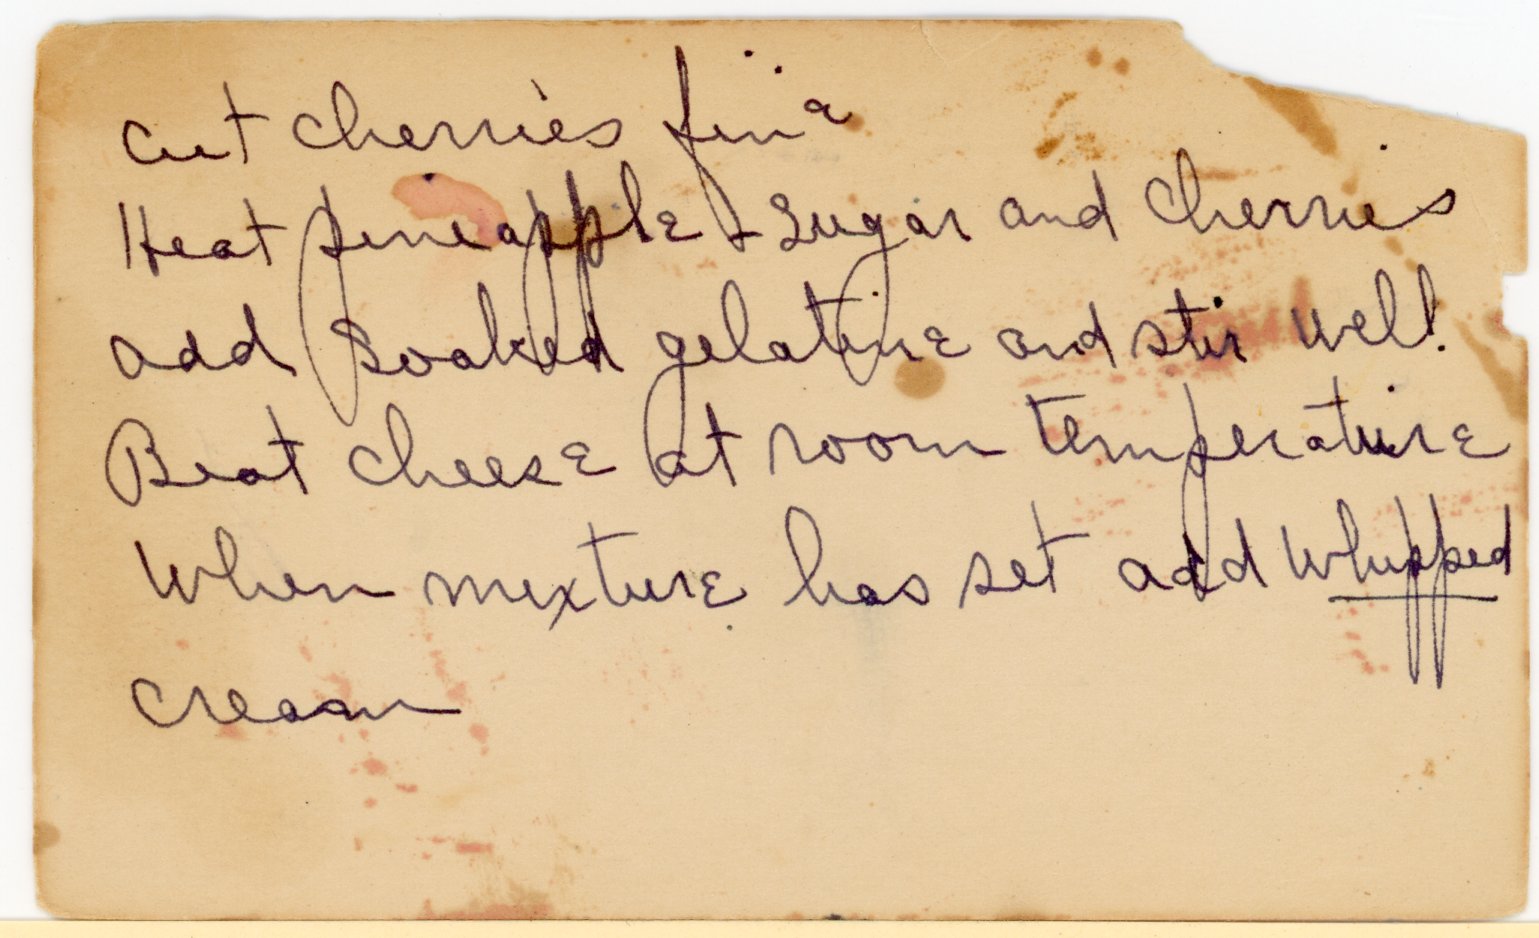 Cut cherries fine
Heat pineapple + sugar and cherries
add soaked gelatine and stir well.
Beat cheese at room temperature
When mixture has set add whipped
cream